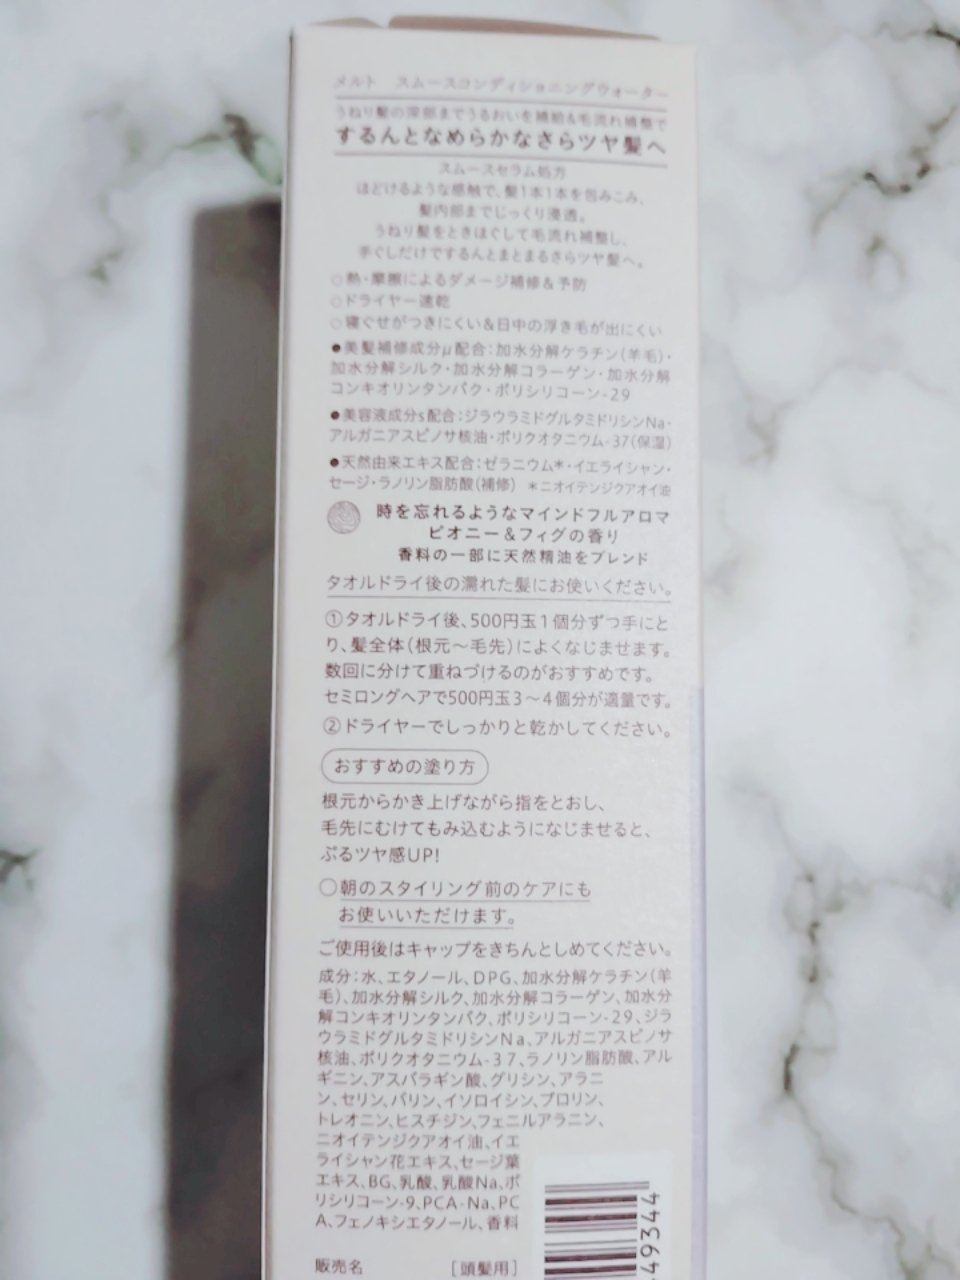 メルト スムースコンディショニングウォーター
うねり髪の深部までうるおいを補給&毛流れ補整で
するんとなめらかなさらツヤ髪へ
スムースセラム処方
ほどけるような感触で、髪1本1本を包みこみ、
髪内部までじっくり浸透。
うねり髪をときほぐして毛流れ補整し、
手ぐしだけでするんとまとまるさらツヤ髪へ。
○熱・摩擦によるダメージ補修&予防
○ドライヤー速乾
○寝ぐせがつきにくい&日中の浮き毛が出にくい
●美髪補修成分μ配合:加水分解ケラチン(羊毛)・
加水分解シルク・加水分解コラーゲン・加水分解
コンキオリンタンパク・ポリシリコーン-29
●美容液成分s配合:ジラウラミドグルタミドリシンNa・
アルガニアスピノサ核油・ポリクオタニウム-37(保湿)
●天然由来エキス配合:ゼラニウム*・イエライシャン・
セージ・ラノリン脂肪酸(補修) *ニオイテンジクアオイ油
時を忘れるようなマインドフルアロマ
ピオニー&フィグの香り
香料の一部に天然精油をブレンド
タオルドライ後の濡れた髪にお使いください。
①タオルドライ後、500円玉1個分ずつ手にと
り、髪全体(根元〜毛先)によくなじませます。
数回に分けて重ねづけるのがおすすめです。
セミロングヘアで500円玉3〜4個分が適量です。
②ドライヤーでしっかりと乾かしてください。
おすすめの塗り方
根元からかき上げながら指をとおし、
毛先にむけてもみ込むようになじませると、
ぷるツヤ感UP!
○朝のスタイリング前のケアにも
お使いいただけます。
ご使用後はキャップをきちんとしめてください。
成分:水、エタノール、DPG、加水分解ケラチン(羊
毛)、加水分解シルク、加水分解コラーゲン、加水分
解コンキオリンタンパク、ポリシリコーン-29、ジラ
ウラミドグルタミドリシンNa、アルガニアスピノサ
核油、ポリクオタニウム-37、ラノリン脂肪酸、アル
ギニン、アスパラギン酸、グリシン、アラニ
ン、セリン、バリン、イソロイシン、プロリン、
トレオニン、ヒスチジン、フェニルアラニン、
ニオイテンジクアオイ油、イエ
ライシャン花エキス、セージ葉
エキス、BG、乳酸、乳酸Na、ポ
リシリコーン-9、PCA-Na、PC
A、フェノキシエタノール、香料
販売名 [頭髪用]
49344